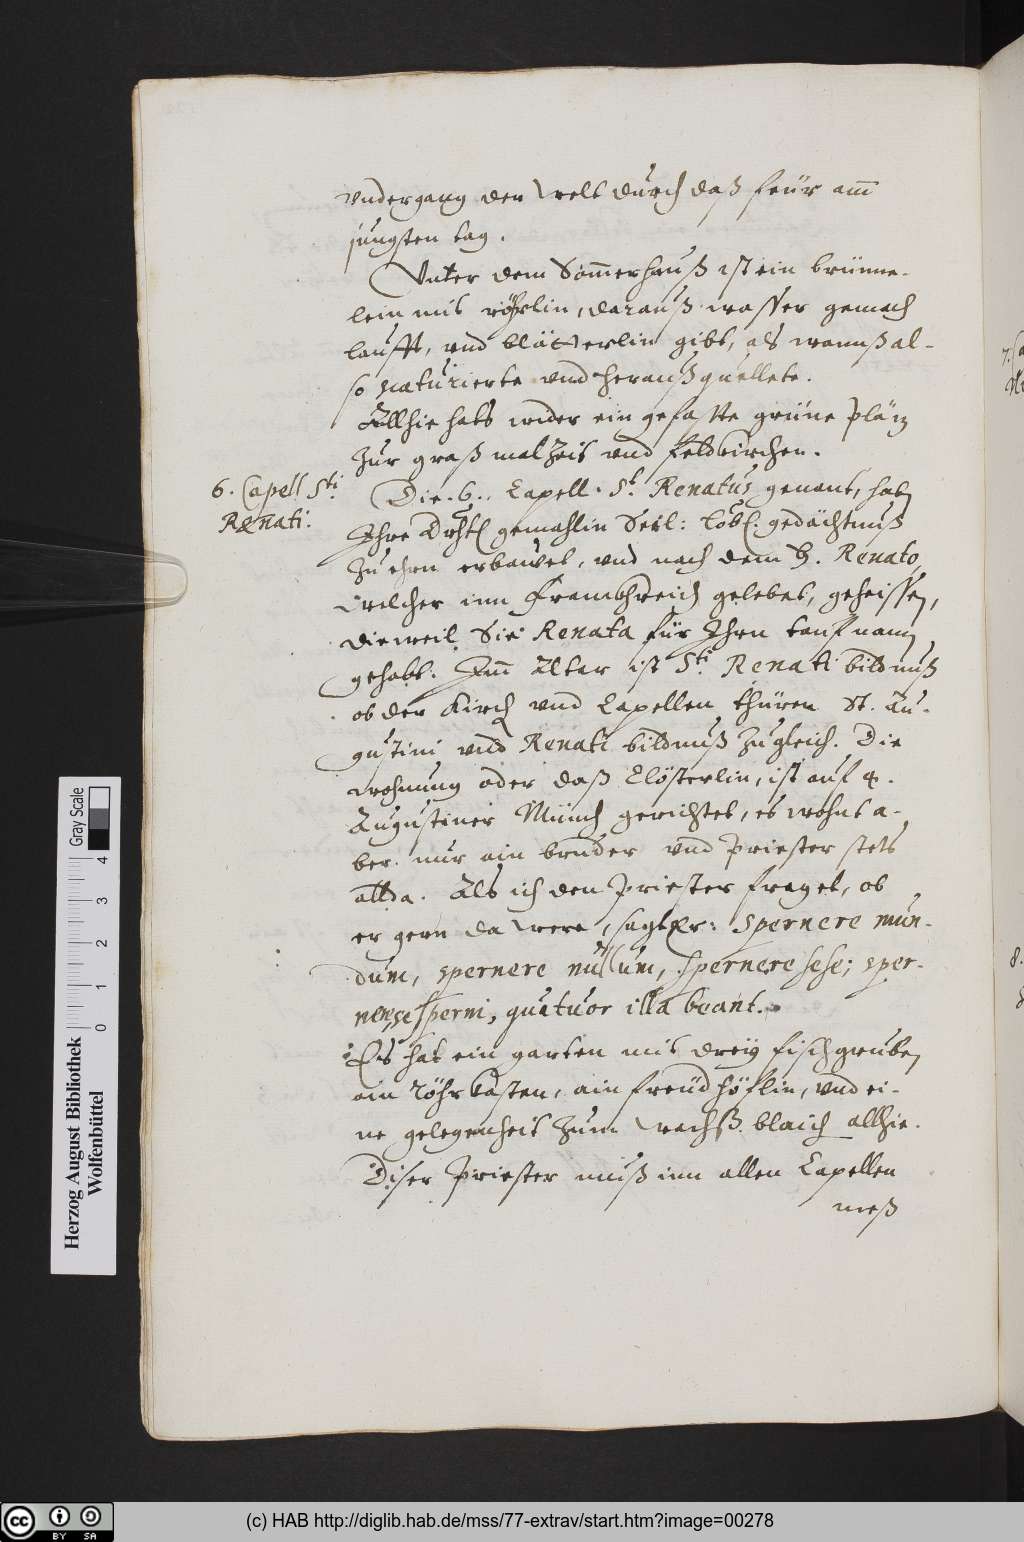 vndergang der Welt durch daß feür am̄
jüngsten tag.
Vnter dem Som̄erhauß ist ein brünne-
lein mit röhrlin, darauß wasser gemach
laufft, vnd blätterlin gibt, als wannß al-
so naturierte vnd heraußquellete.
Allhie hats wider ein gefaste grüne Plätz
zur graß malzeit vnd feldkirchen.
6. Capell Sti.
Renati.
Die .6. Capell. St. Renatus genant, hat
Ihre Drhtl gemahlin Seel: Lobl. gedächtnuß
zu ehrn erbawet, vnd nach dem H. Renato,
welcher inn Frankhreich gelebet, geheissen,
dieweil Sie Renata für Ihrn taufnamen
gehabt. Im̄ Altar ist Sti. Renati bildnuß
ob der Kirch vnd Capellen thüren St. Au-
gustini vnd Renati bildnuß zugleich. Die
wohnung oder daß Clösterlin, ist auf 4.
Augustiner Münch gerichtet, es wohnt a-
ber nur ain bruder vnd Priester stets
allda. Als ich den Priester fraget, ob
er gern da were, sagt er: Spernere mun-
dum, spernere nullum, spernere sese; sper-
nere se sperni, quatuor illa beant.
Es hat ein garten mit dreij fischgruben
ain röhrkasten, ain freüdhöflin, vnd ei-
ne gelegenheit zum Wachß blaich allhie.
Diser Priester muß inn allen Capellen
meß
Herzog August Bibliothek
Wolfenbüttel
0 1 2 3 4
Gray Scale
7. Ca
8.
BY SA
(c) HAB http://diglib.hab.de/mss/77-extrav/start.htm?image=00278